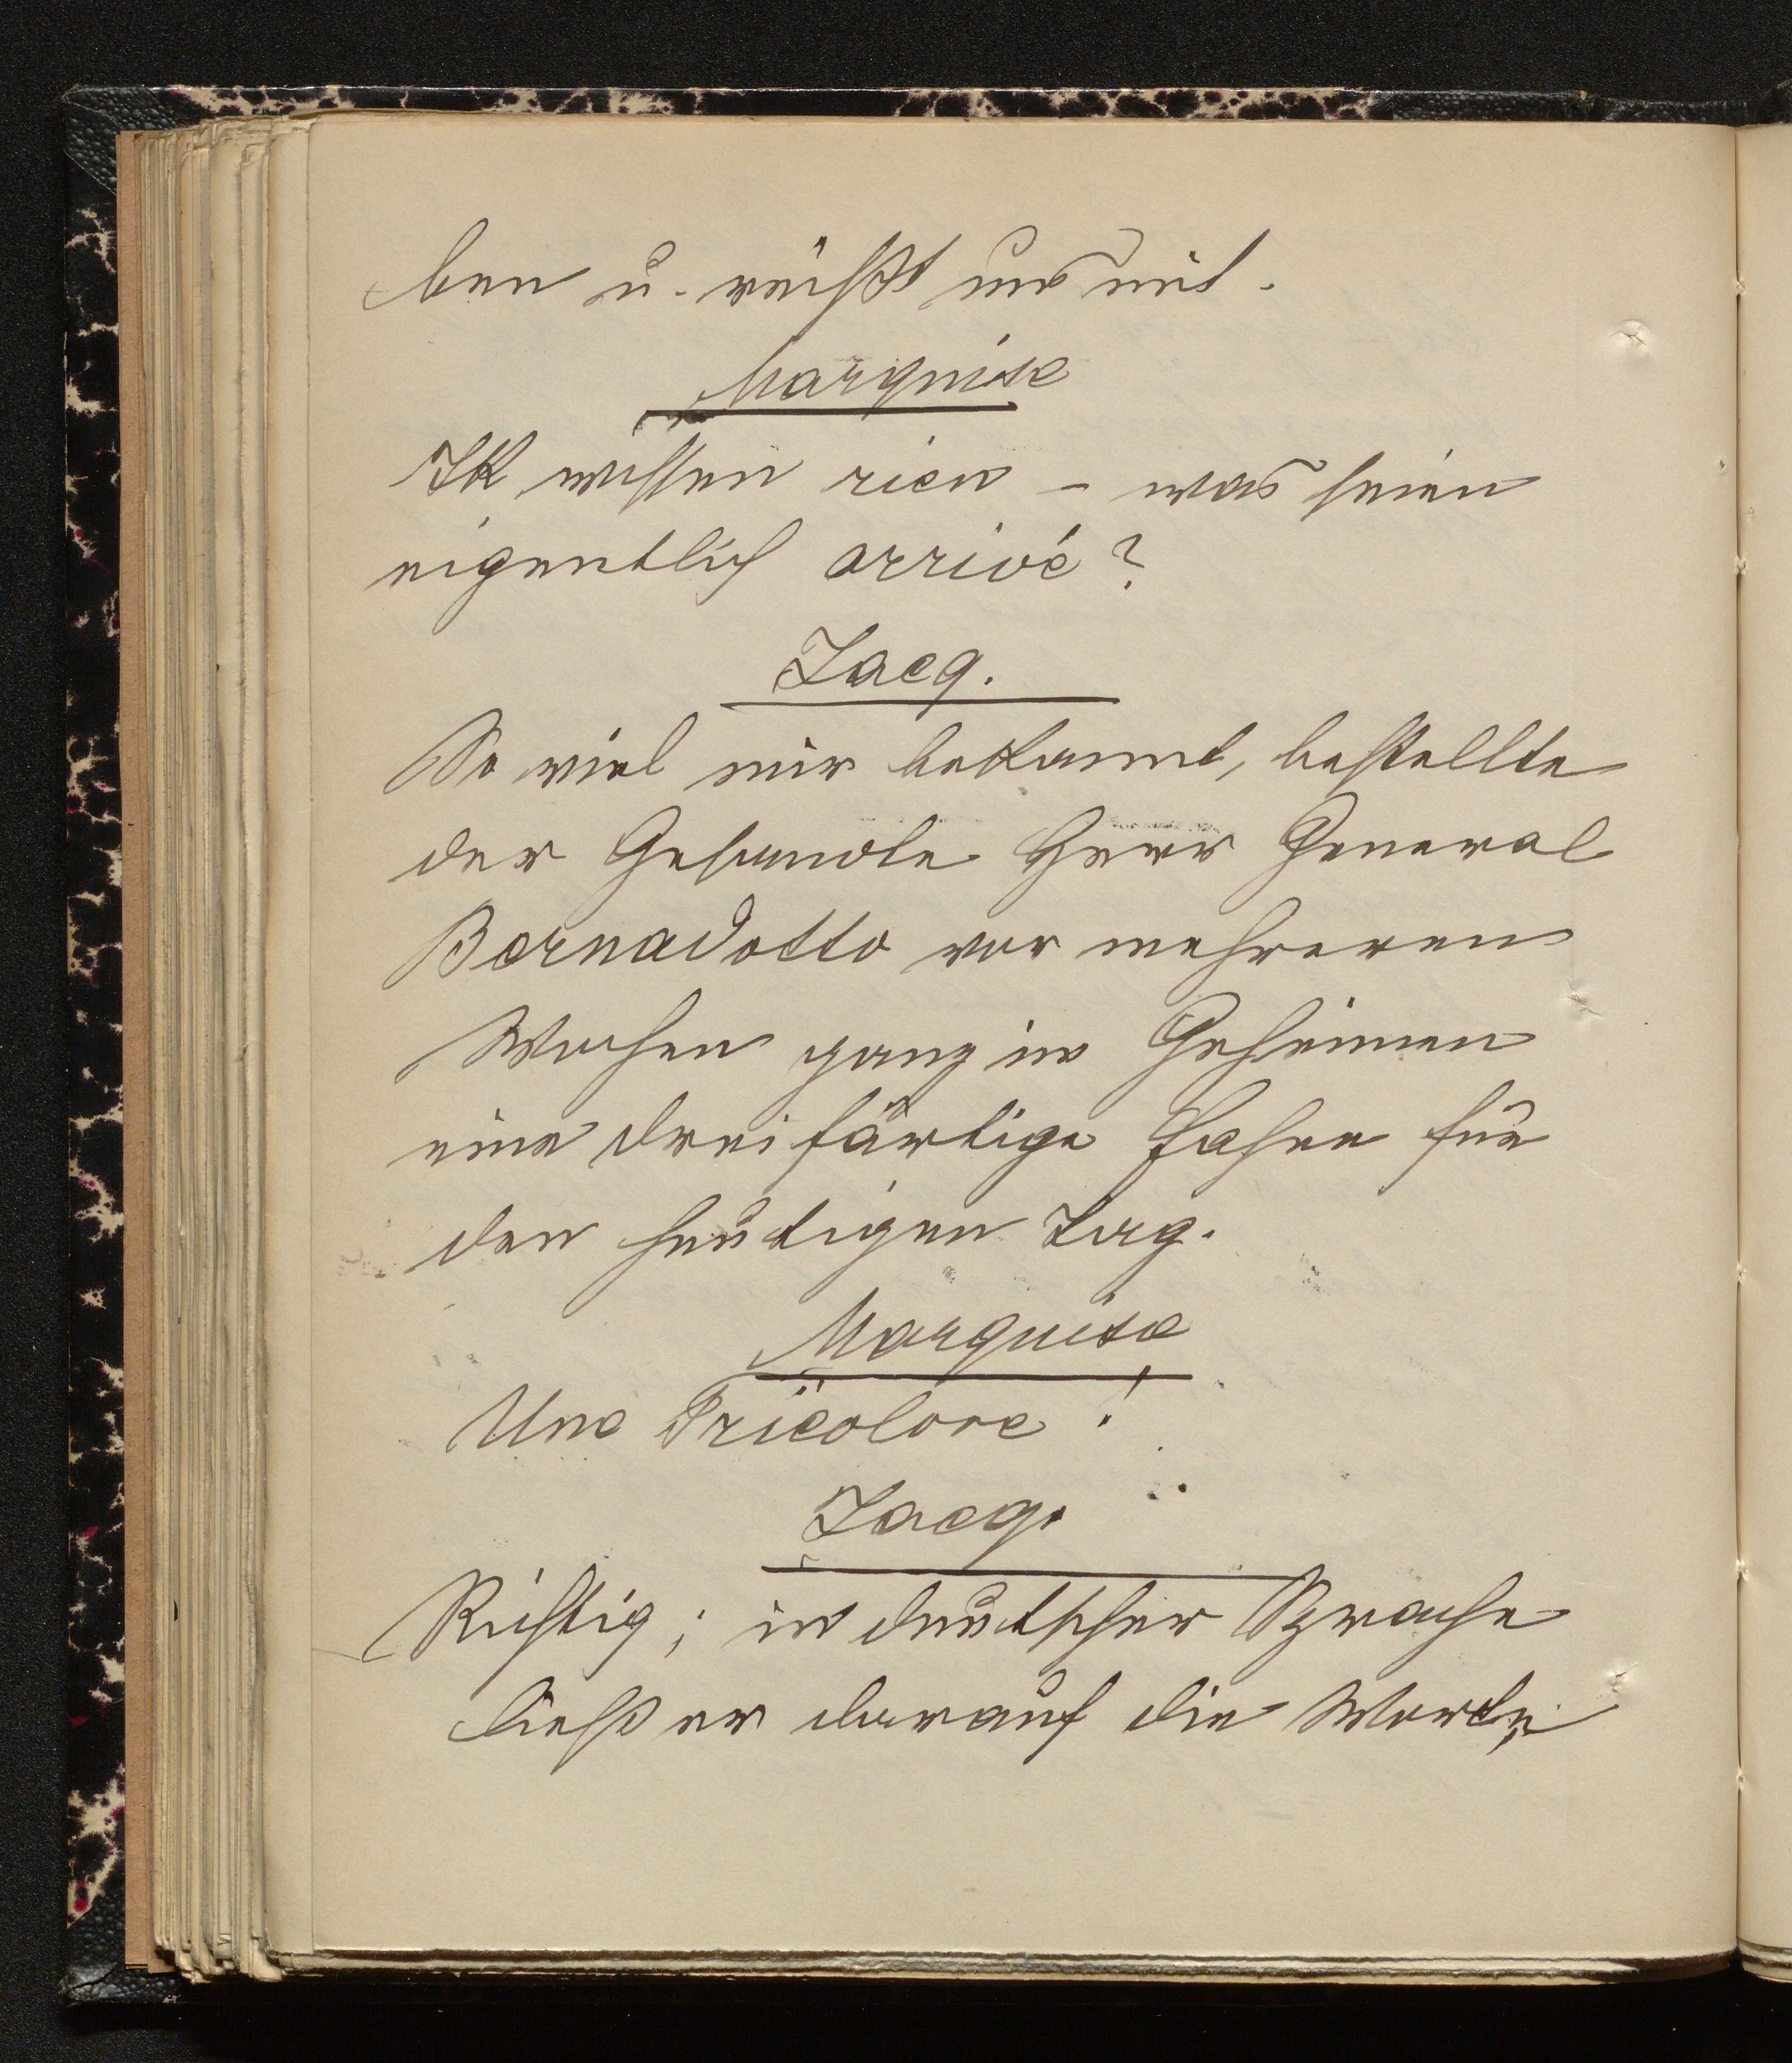 ben u. reißt uns mit.
Marquise
Ik wissen rien – was seien
eigentlich arrivé?
Jacq.
So viel mir bekannt, bestellte
der Gesandte Herr General
Bernadotto vor mehreren
Wochen ganz im Geheimen
eine dreifärbige Fahne für
den heutigen Tag.
Marquise
Une Tricolore!
Jacq.
Richtig; in deutscher Sprache
ließ er darauf die Worte